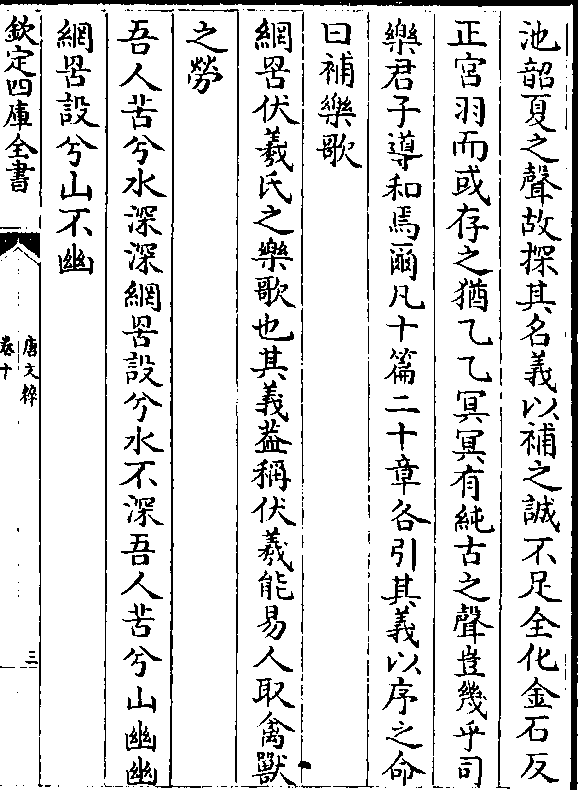 池韶夏之聲故探其名義以補之誠不足全化金石反
正宮羽而或存之猶乙乙冥冥有純古之聲豈幾乎司
樂君子導和焉爾凡十篇二十章各引其義以序之命
曰補樂歌
網罟伏羲氏之樂歌也其義葢稱伏羲能易人取禽獸
之勞
吾人苦兮水深深網罟設兮水不深吾人苦兮山幽幽
網罟設兮山不幽
欽定四庫全書
唐文粹
卷十
三